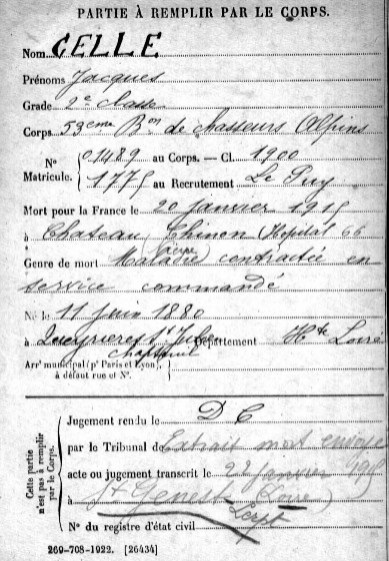 PARTIE À REMPLIR PAR LE CORPS.
Nom CELLE
Prénoms Jacques
Grade 2e classe
Corps 53ème Bon de chasseurs Alpins
No 01489 au Corps. — Cl. 1900
Matricule. 1775 au Recrutement Le Puy
Mort pour la France le 20 janvier 1915
à Chateau Chinon (Hôpital 66
Genre de mort Maladie contractée en
(fièvre)
service commandé
Né le 11 juin 1880
à Queyrières St Julien Département Hte Loire
Chapteuil
Arrt municipal (pr Paris et Lyon),
à défaut rue et No.
Cette partie
n'est pas à remplir
par le Corps.
Jugement rendu le D C
par le Tribunal de Extrait mort envoyé
acte ou jugement transcrit le 22 janvier 1915
à St Genest (Loire)
Lerpt
No du registre d'état civil
269-708-1922. [26434]